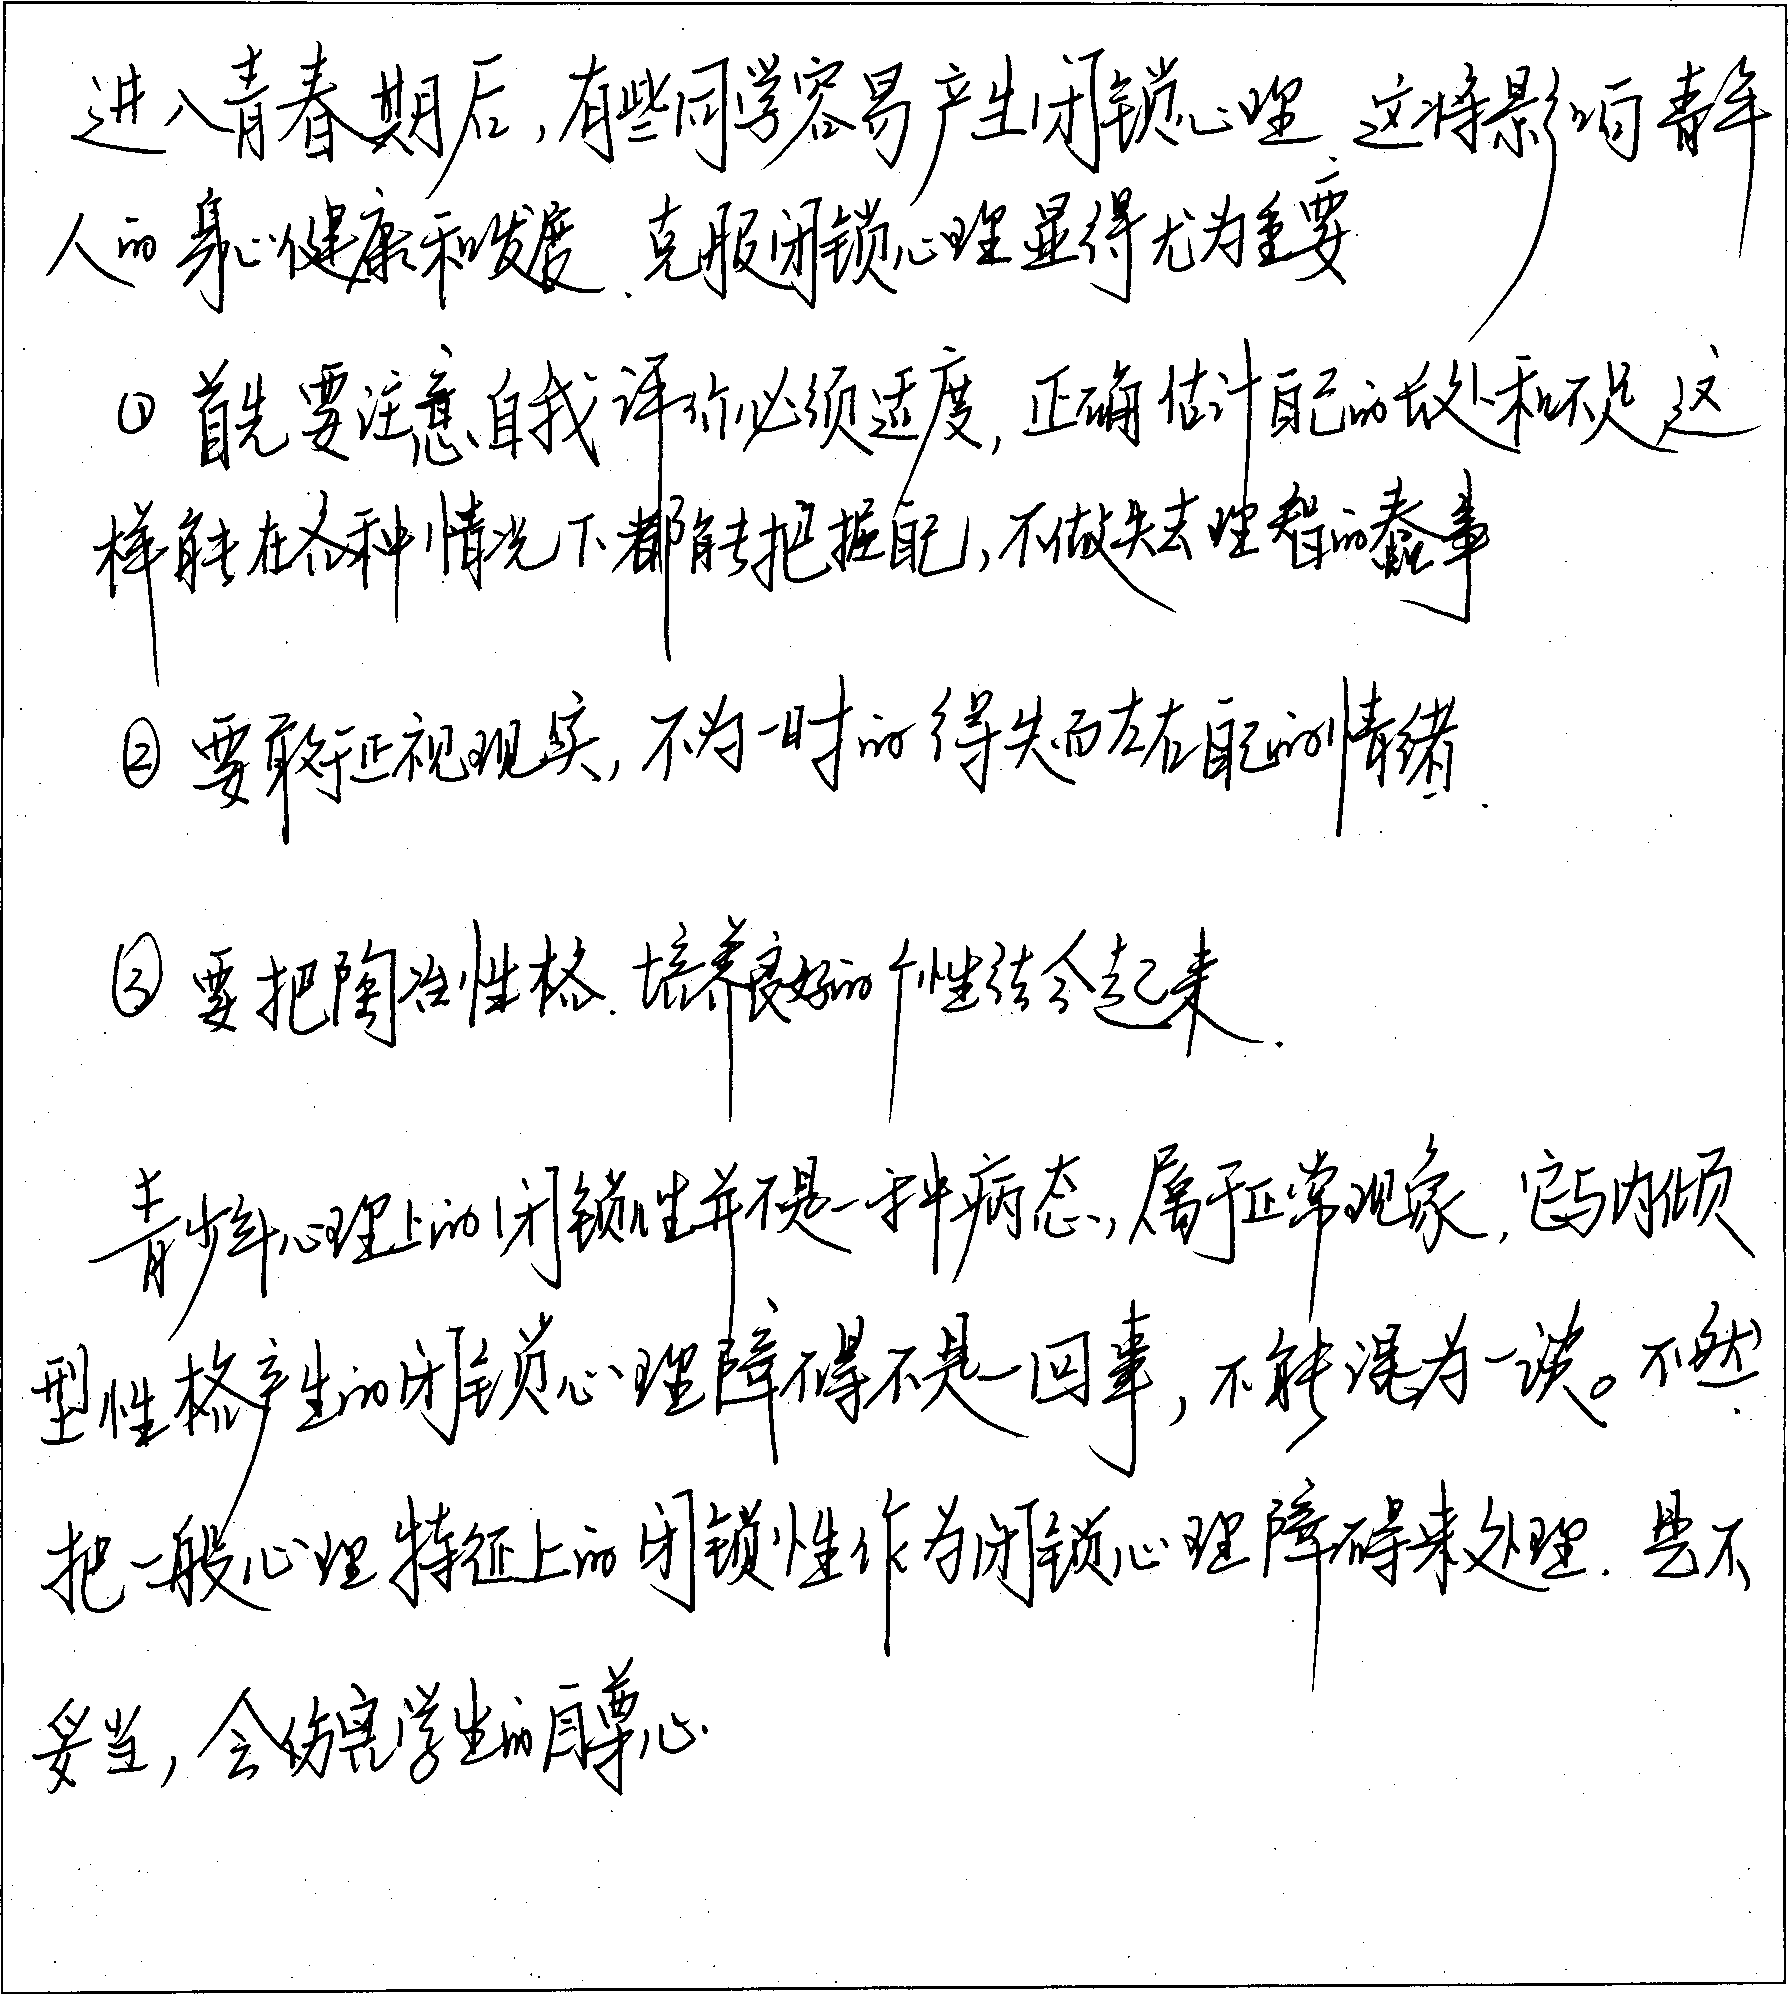 进入青春期后,有些同学容易产生闭锁心理.这将影响青年
人的身心健康和发展.克服闭锁心理显得尤为重要
① 首先要注意自我评价必须适度,正确估计自己的长处和不足.这
样能在各种情况下都能把握自己,不做失去理智的蠢事
② 要敢于正视现实,不为一时的得失而左右自己的情绪.
③ 要把陶冶性格.培养良好的个性结合起来.
青少年心理上的闭锁性并不是一种病态,属于正常现象,它与内倾
型性格产生的闭锁心理障碍不是一回事,不能混为一谈。不然.
把一般心理特征上的闭锁性作为闭锁心理障碍来处理.是不
妥当,会伤害学生的自尊心.